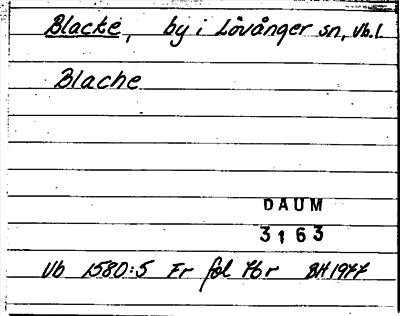 Blacke, by i Lövånger sn, Vb. l.
Blache
DAUM
3163
Vb 1580:5 Fr fol 76r BH 1977